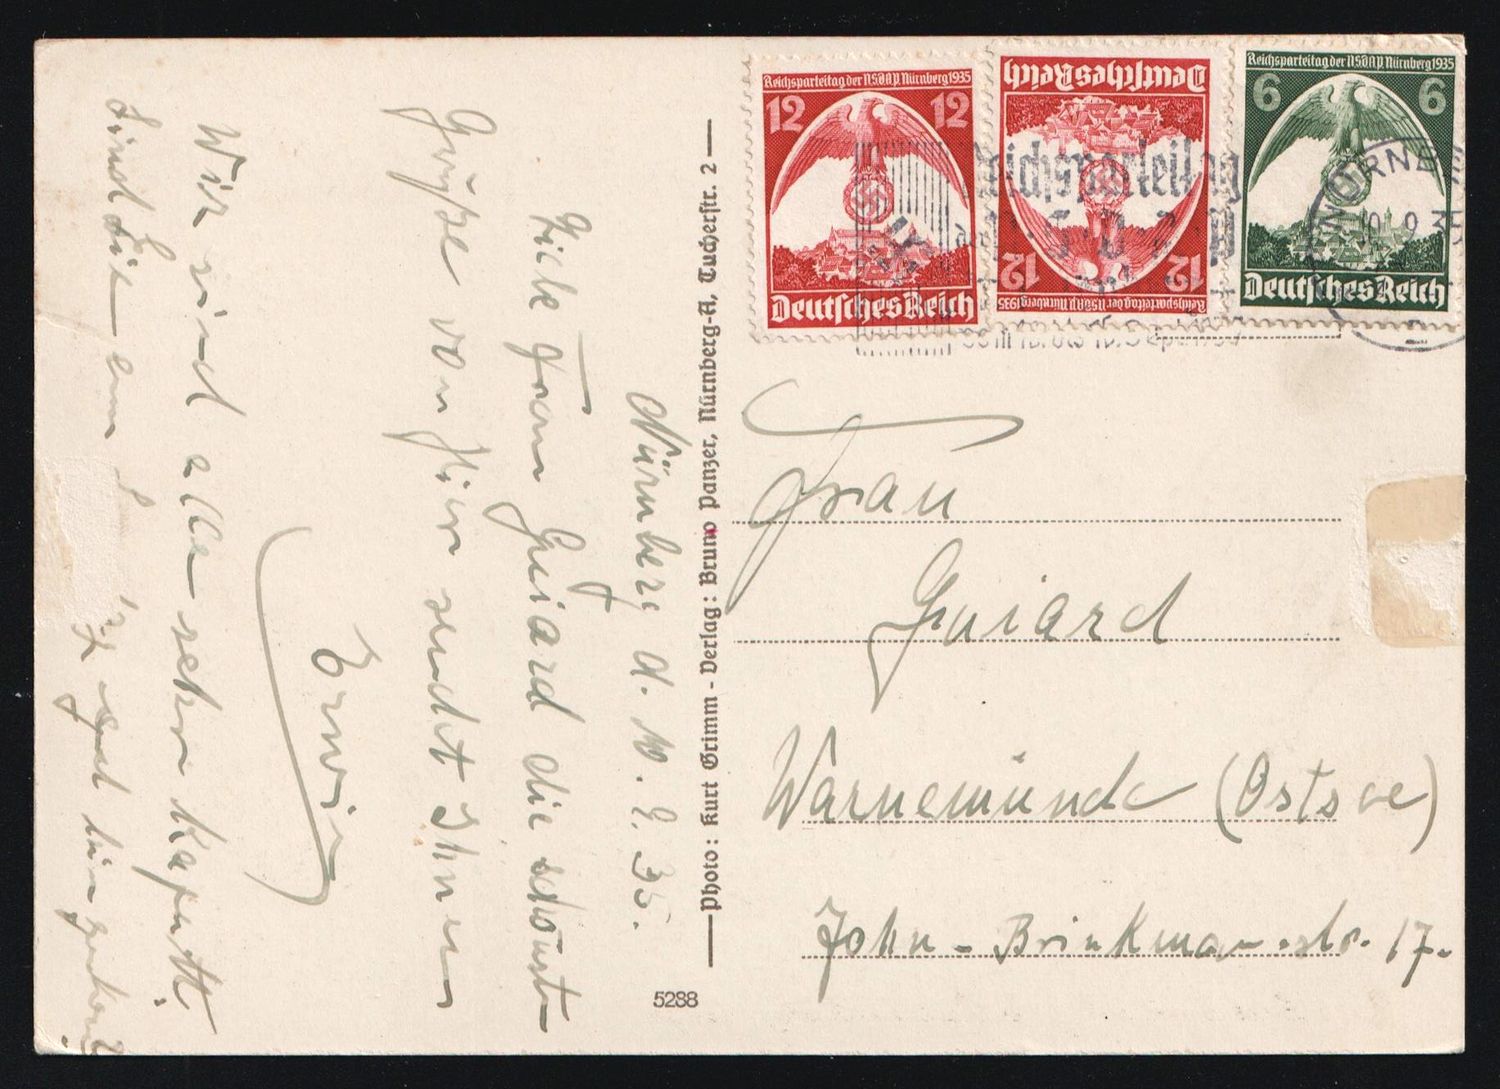 Reichsparteitag der NSDAP Nürnberg 1935
12 12
Deutsches Reich
Reichsparteitag der NSDAP Nürnberg 1935
12 12
Deutsches Reich
Reichsparteitag der NSDAP Nürnberg 1935
6 6
Deutsches Reich
Reichsparteitag
N.S.D.A.P.
NÜRNBERG
10.9.35
Nürnberg d. 10.9.35.
Liebe Frau Guiard die schönst
Grüße von hier sendet Ihnen
Erwin
Wir sind alle sehr kaputt
sind Sie
Photo: Kurt Grimm - Verlag: Bruno Panzer, Nürnberg-A, Tucherstr. 2
5288
Frau
Guiard
Warnemünde (Ostsee)
John-Brinkman-str. 17.